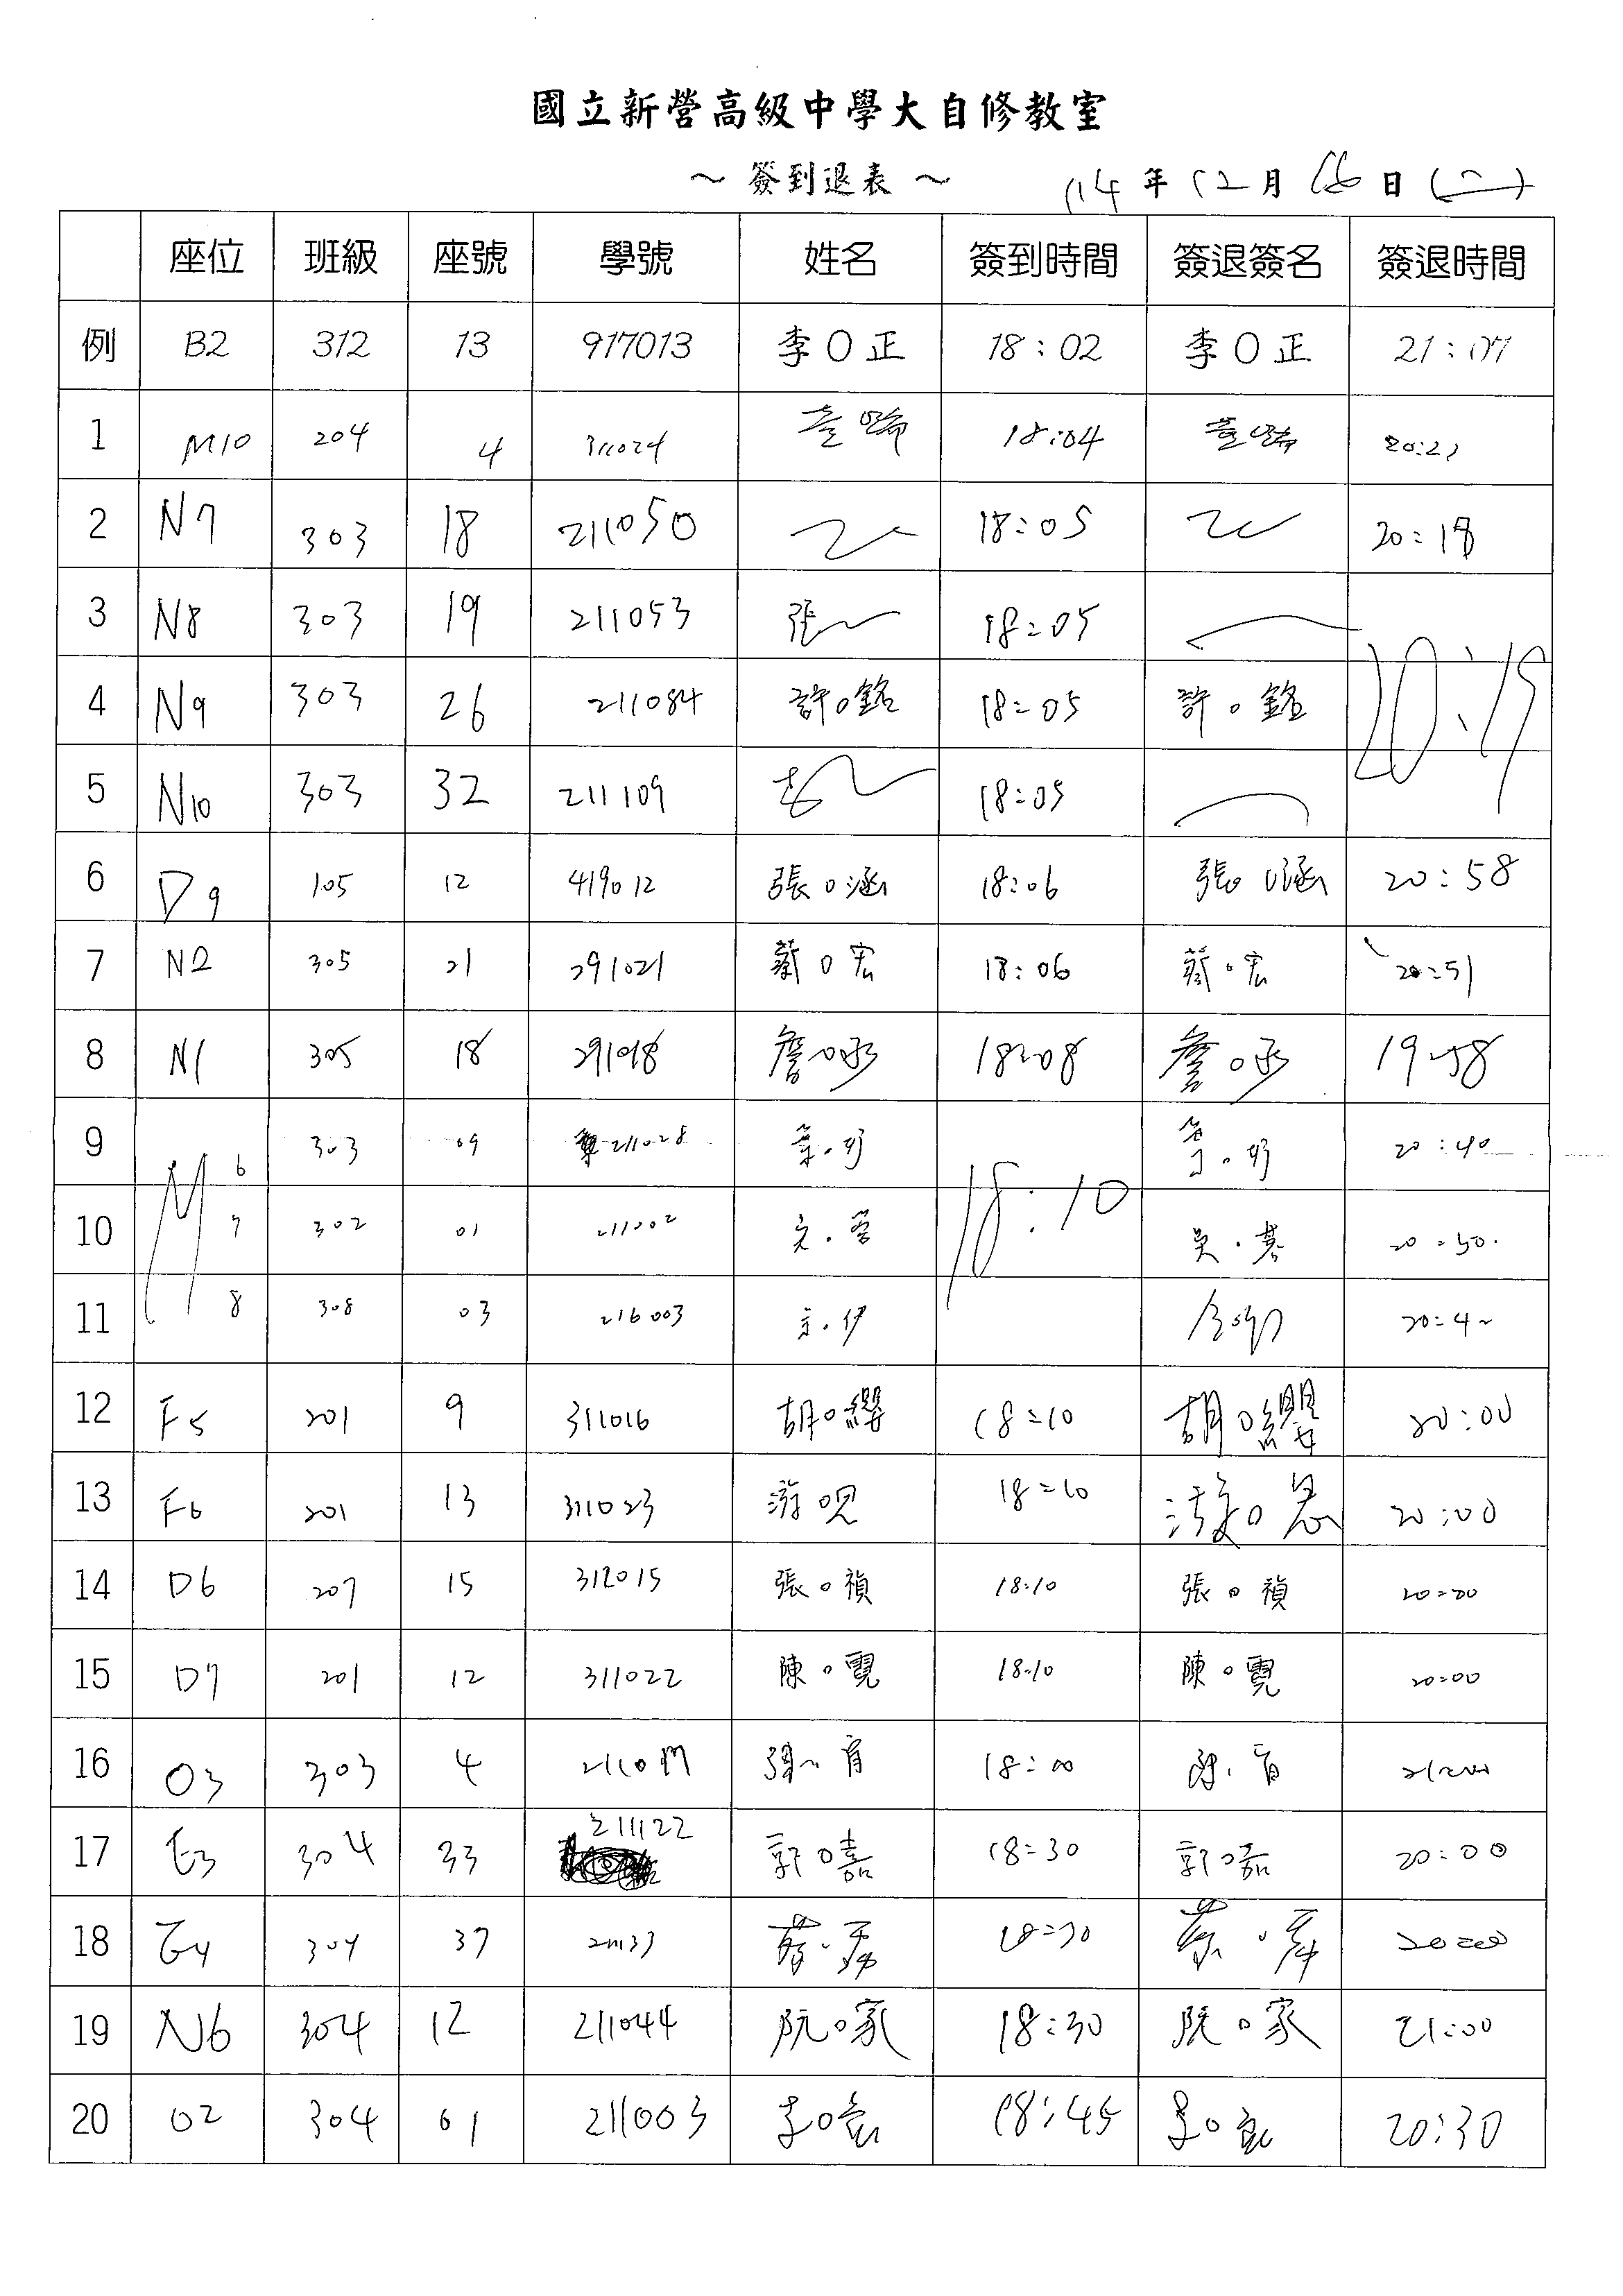 國立新營高級中學大自修教室
～ 簽到退表 ～ 114 年 12 月 16 日 (二)
座位 班級 座號 學號 姓名 簽到時間 簽退簽名 簽退時間
例 B2 312 13 917013 李O正 18:02 李O正 21:07
1 M10 204 4 311024 18:04 20:21
2 N7 303 18 211050 18:05 20:18
3 N8 303 19 211053 張 18:05 20:19
4 N9 303 26 211084 許O銘 18:05 許O銘
5 N10 303 32 211109 18:05
6 D9 105 12 419012 張O涵 18:06 張O涵 20:58
7 N2 305 21 291021 蔡O宏 18:06 蔡O宏 20:51
8 N1 305 18 291018 詹O承 18:08 詹O承 19:58
9 M6 303 09 211028 18:10 20:40
10 7 302 01 211002 吳 20:50
11 8 308 03 216003 20:4
12 F5 201 9 311016 胡O纓 18:10 胡O纓 20:00
13 F6 201 13 311023 游O恩 18:10 游O恩 20:00
14 D6 207 15 312015 張O禎 18:10 張O禎 20:00
15 D7 201 12 311022 陳O霓 18:10 陳O霓 20:00
16 O3 303 4 18:00
17 E3 304 33 211122 郭O嘉 18:30 郭O嘉 20:00
18 E4 304 37 蔡 18:30 蔡 20:00
19 N6 304 12 211044 阮O家 18:30 阮O家 21:00
20 O2 304 01 211003 18:45 20:30